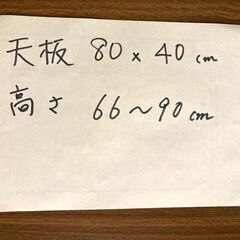 天板 80×40cm
高さ 66〜90cm